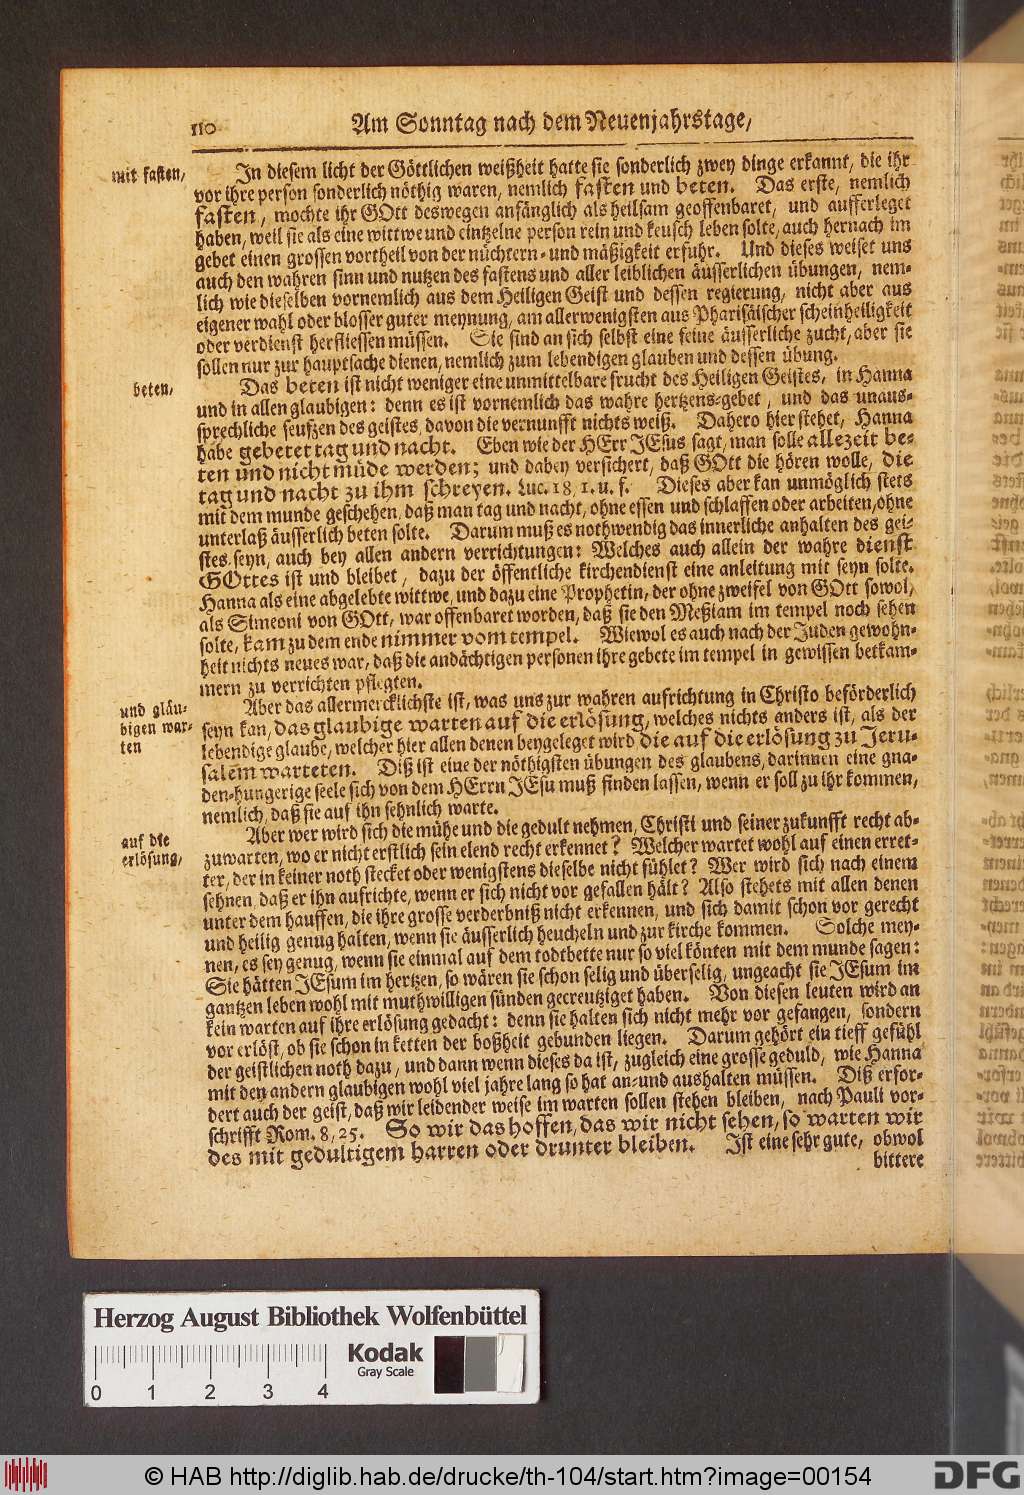 110
Am Sonntag nach dem Neuenjahrstage,
mit fasten,
In diesem licht der Göttlichen weißheit hatte sie sonderlich zwey dinge erkannt, die ihr
vor ihre person sonderlich nöthig waren, nemlich fasten und beten. Das erste, nemlich
fasten, mochte ihr GOtt deswegen anfänglich als heilsam geoffenbaret, und aufferleget
haben, weil sie als eine wittwe und eintzelne person rein und keusch leben solte, auch hernach im
gebet einen grossen vortheil von der nüchtern- und mäßigkeit erfuhr. Und dieses weiset uns
auch den wahren sinn und nutzen des fastens und aller leiblichen äusserlichen übungen, nem-
lich wie dieselben vornemlich aus dem Heiligen Geist und dessen regierung, nicht aber aus
eigener wahl oder blosser guter meynung, am allerwenigsten aus Pharisäischer scheinheiligkeit
oder verdienst herfliessen müssen. Sie sind an sich selbst eine feine äusserliche zucht, aber sie
sollen nur zur hauptsache dienen, nemlich zum lebendigen glauben und dessen übung.
beten,
Das beten ist nicht weniger eine unmittelbare frucht des Heiligen Geistes, in Hanna
und in allen glaubigen: denn es ist vornemlich das wahre hertzens-gebet, und das unaus-
sprechliche seufzen des geistes, davon die vernunfft nichts weiß. Dahero hier stehet, Hanna
habe gebetet tag und nacht. Eben wie der HErr JEsus sagt, man solle allezeit be-
ten und nicht müde werden; und dabey versichert, daß GOtt die hören wolle, die
tag und nacht zu ihm schreyen. Luc. 18, 1. u. f. Dieses aber kan unmöglich stets
mit dem munde geschehen, daß man tag und nacht, ohne essen und schlaffen oder arbeiten, ohne
unterlaß äusserlich beten solte. Darum muß es nothwendig das innerliche anhalten des gei-
stes seyn, auch bey allen andern verrichtungen: Welches auch allein der wahre dienst
GOttes ist und bleibet, dazu der öffentliche kirchendienst eine anleitung mit seyn solte.
Hanna als eine abgelebte wittwe, und dazu eine Prophetin, der ohne zweifel von GOtt sowol,
als Simeoni von GOtt, war offenbaret worden, daß sie den Meßiam im tempel noch sehen
solte, kam zu dem ende nimmer vom tempel. Wiewol es auch nach der Juden gewohn-
heit nichts neues war, daß die andächtigen personen ihre gebete im tempel in gewissen betkam-
mern zu verrichten pflegten.
und gläu-
bigen war-
ten
Aber das allermercklichste ist, was uns zur wahren aufrichtung in Christo beförderlich
seyn kan, das glaubige warten auf die erlösung, welches nichts anders ist, als der
lebendige glaube, welcher hier allen denen beygeleget wird die auf die erlösung zu Jeru-
salem warteten. Diß ist eine der nöthigsten übungen des glaubens, darinnen eine gna-
den-hungerige seele sich von dem HErrn JEsu muß finden lassen, wenn er soll zu ihr kommen,
nemlich, daß sie auf ihn sehnlich warte.
auf die
erlösung,
Aber wer wird sich die mühe und die gedult nehmen, Christi und seiner zukunfft recht ab-
zuwarten, wo er nicht erstlich sein elend recht erkennet? Welcher wartet wohl auf einen erret-
ter, der in keiner noth stecket oder wenigstens dieselbe nicht fühlet? Wer wird sich nach einem
sehnen, daß er ihn aufrichte, wenn er sich nicht vor gefallen hält? Also stehets mit allen denen
unter dem hauffen, die ihre grosse verderbniß nicht erkennen, und sich damit schon vor gerecht
und heilig genug halten, wenn sie äusserlich heucheln und zur kirche kommen. Solche mey-
nen, es sey genug, wenn sie einmal auf dem todtbette nur so viel könten mit dem munde sagen:
Sie hätten JEsum im hertzen, so wären sie schon selig und überselig, ungeacht sie JEsum im
gantzen leben wohl mit muthwilligen sünden gecreutziget haben. Von diesen leuten wird an
kein warten auf ihre erlösung gedacht: denn sie halten sich nicht mehr vor gefangen, sondern
vor erlöst, ob sie schon in ketten der boßheit gebunden liegen. Darum gehört ein tieff gefühl
der geistlichen noth dazu, und dann wenn dieses da ist, zugleich eine grosse geduld, wie Hanna
mit den andern glaubigen wohl viel jahre lang so hat an- und aushalten müssen. Diß erfor-
dert auch der geist, daß wir leidender weise im warten sollen stehen bleiben, nach Pauli vor-
schrifft Rom. 8, 25. So wir das hoffen, das wir nicht sehen, so warten wir
des mit gedultigem harren oder drunter bleiben. Ist eine sehr gute, obwol
bittere
Herzog August Bibliothek Wolfenbüttel
Kodak
Gray Scale
0 1 2 3 4
© HAB http://diglib.hab.de/drucke/th-104/start.htm?image=00154
DFG